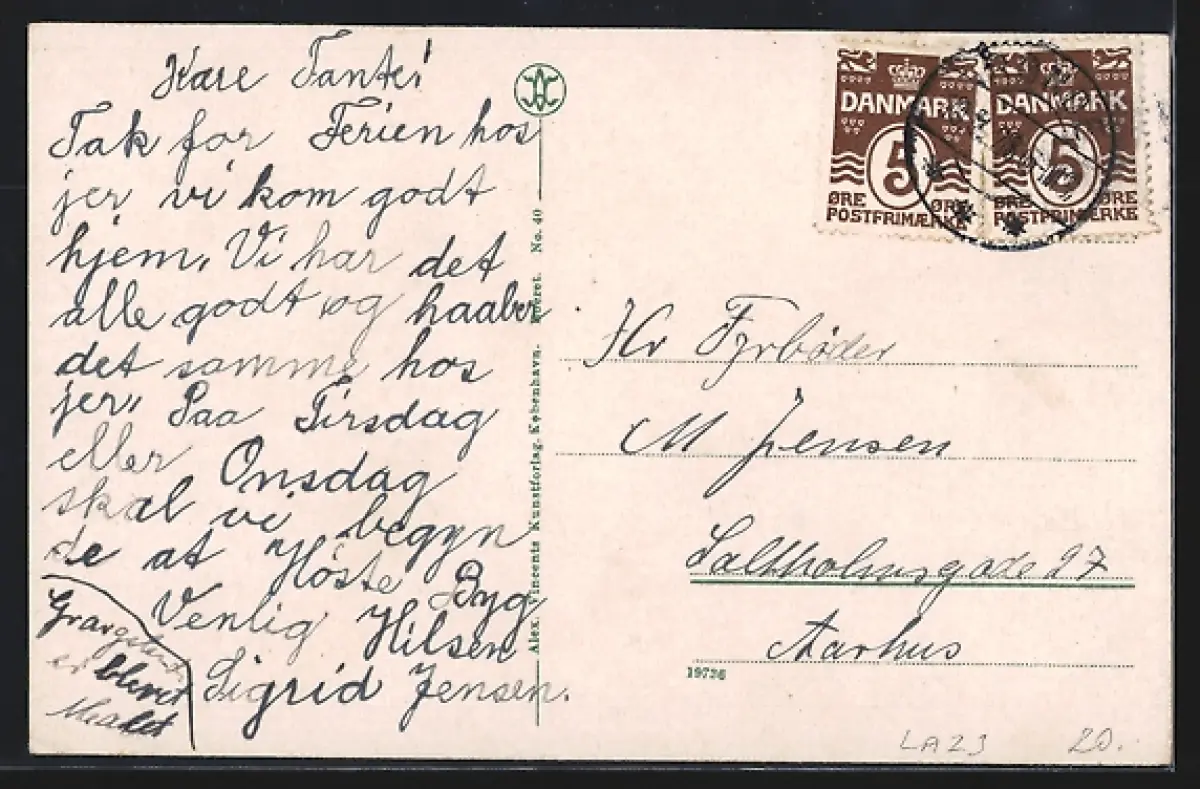 Kære Tante!
Tak for Ferien hos
jer vi kom godt
hjem. Vi har det
alle godt og haaber
det samme hos
jer. Paa Tirsdag
eller Onsdag
skal vi begyn
de at Höste Byg
Venlig Hilsen
Sigrid Jensen.
er blevet
Malet
Alex. Vincents Kunstforlag. København. Eneret. No. 40
DANMARK
5
ØRE ØRE
POSTFRIMÆRKE
DANMARK
5
ØRE ØRE
POSTFRIMÆRKE
Hr Fyrbøder
M Jensen
Saltholmsgade 27
Aarhus
19736
LA23 20.